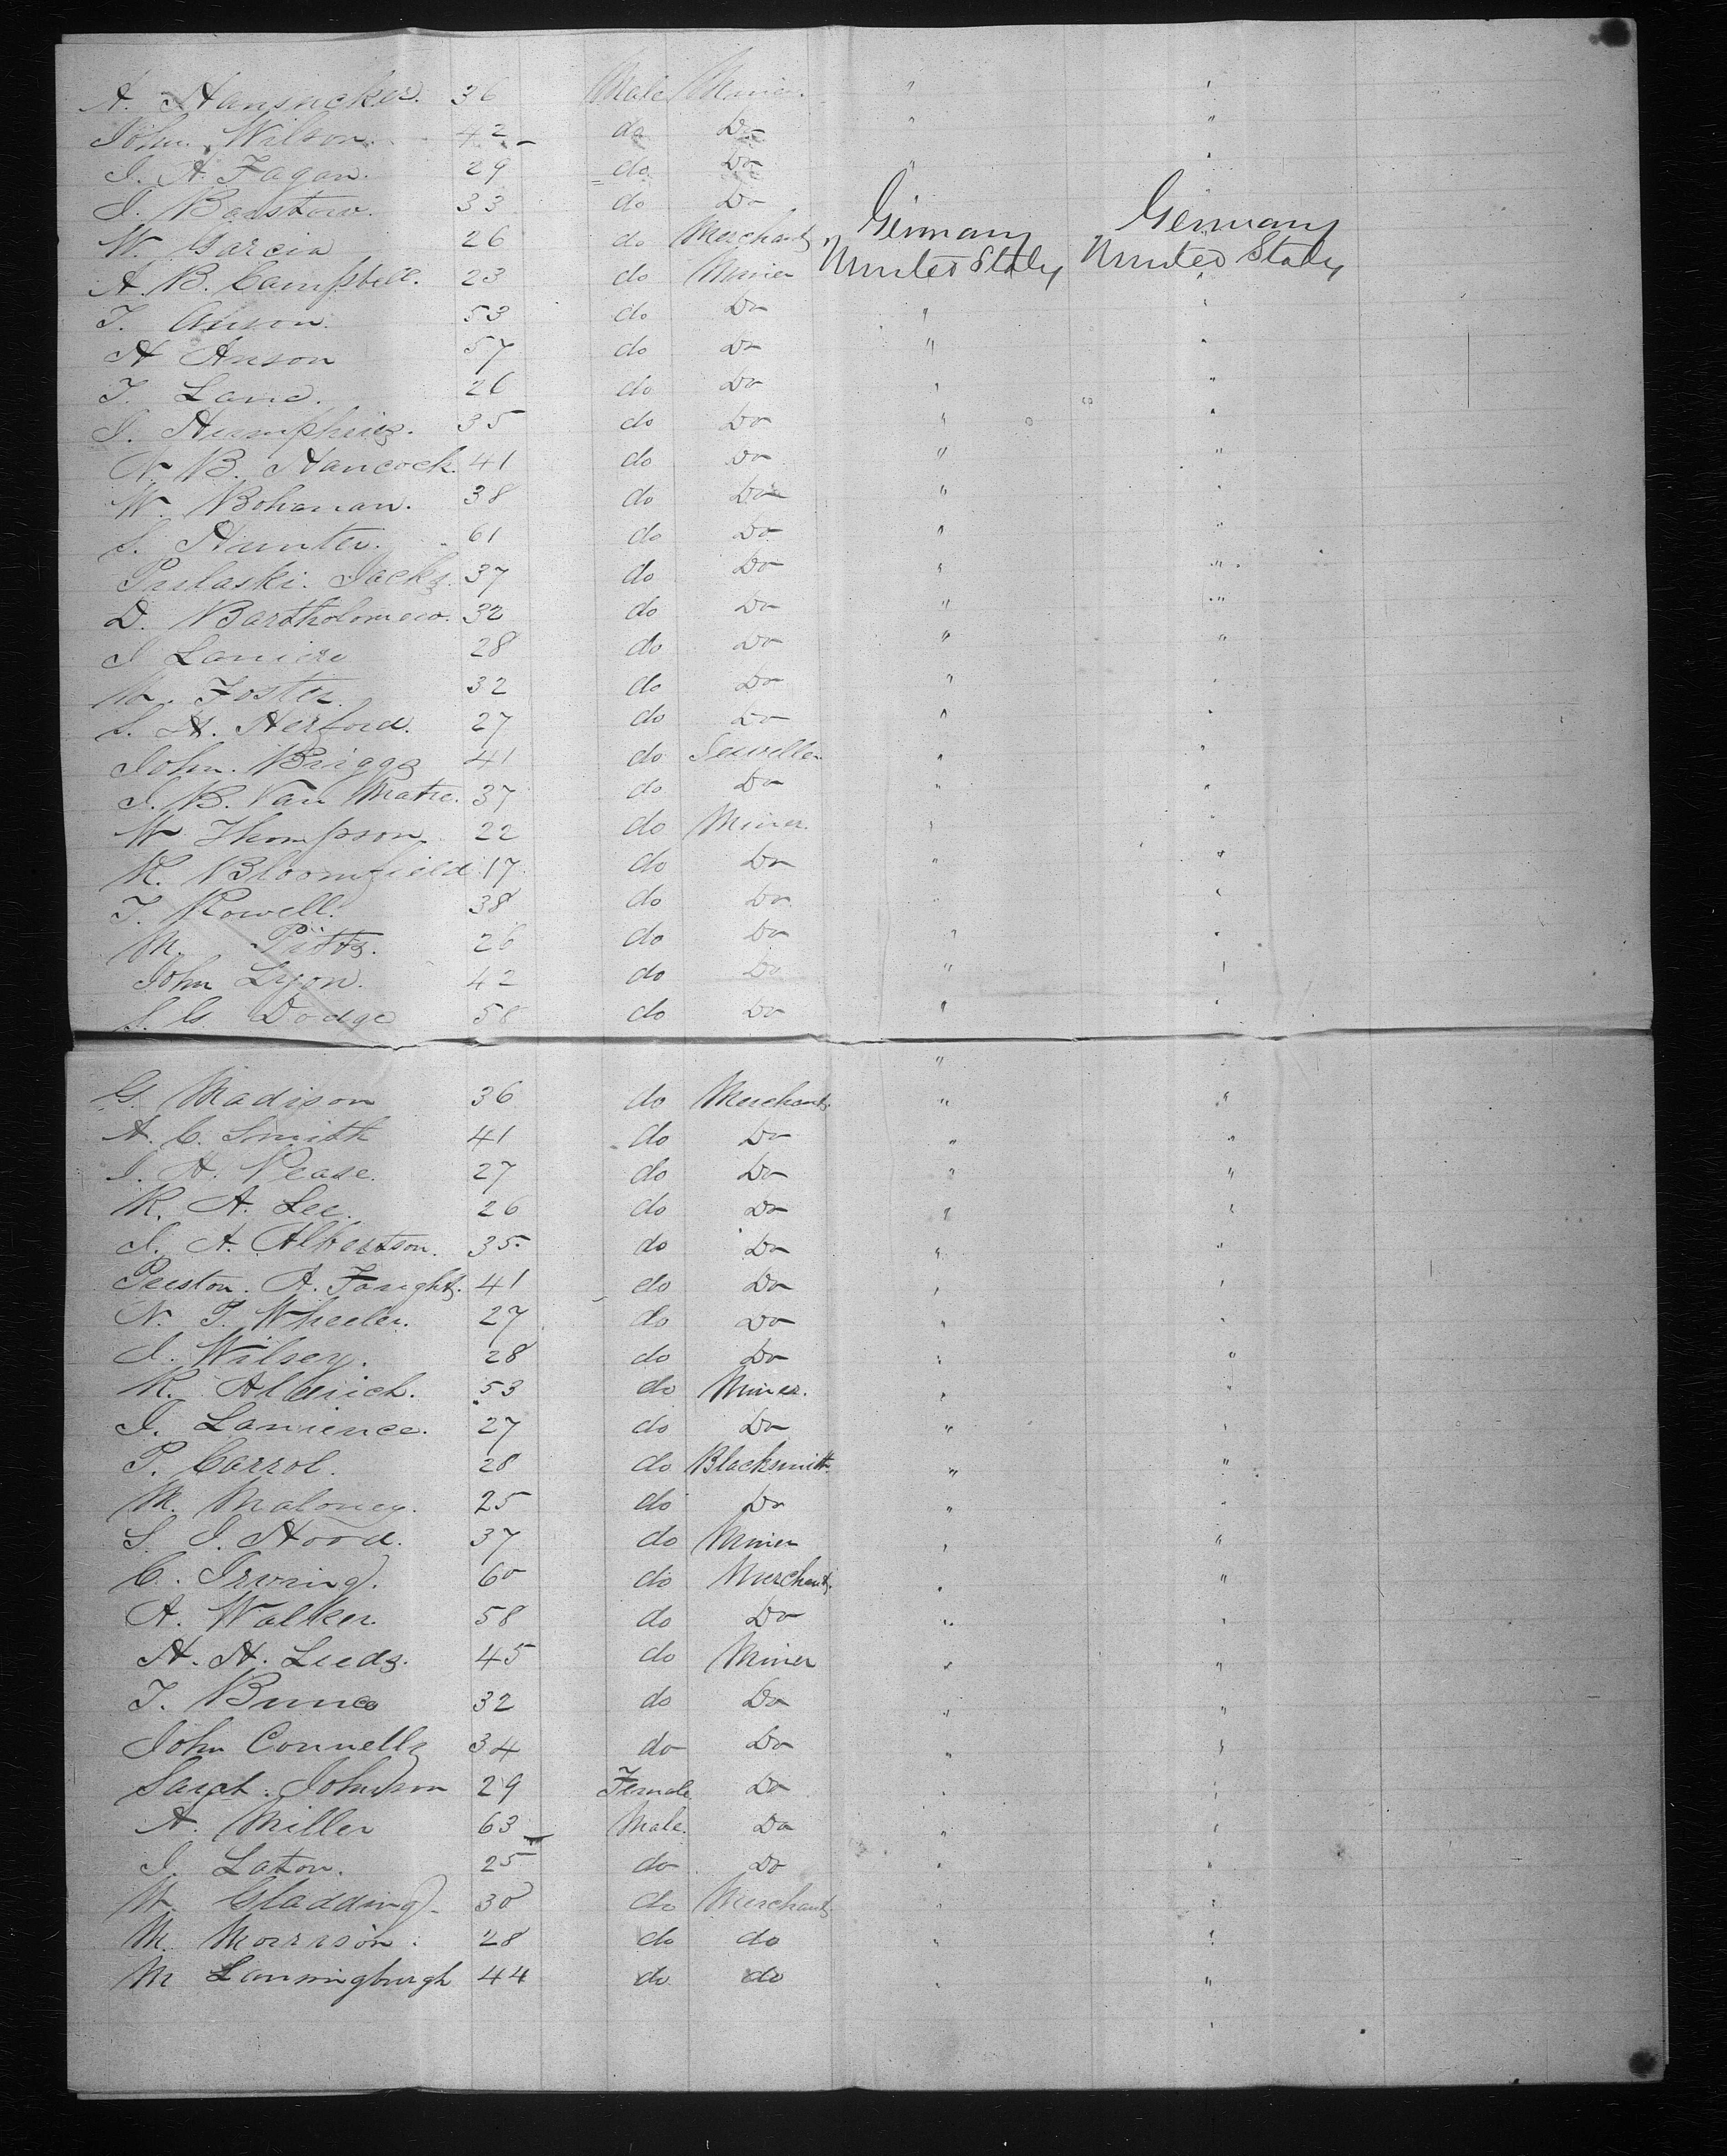 A. Hansucker. 36 Male Miner. " "
John Wilson. 42 do Do " "
J. A. Fagan. 29 do Do " "
J. Barstow. 33 do Do "
W. Garcia 26 do Merchant, Germany Germany
A. B. Campbell. 23 do Miner United States United States
T. Anson. 53 do Do " "
A Anson 57 do Do " "
T. Lane. 26 do Do " "
J. Humphries. 35 do Do " "
N. B. Hancock. 41 do Do " "
W. Bohanan. 38 do Do " "
S. Hunter. 61 do Do " "
Pulaski. Jacks. 37 do Do " "
D. Bartholomew. 32 do Do " "
J Laniere 28 do Do " "
M. Foster. 32 do Do " "
S. H. Herford. 27 do Do " "
John. Briggs 41 do Jeweller " "
J. B. Van Matre. 37 do Do " "
W Thompson 22 do Miner. " "
R. Bloomfield. 17. do Do " "
T. Rowell. 38 do Do " "
M. Pitts. 26 do Do " "
John Lyon. 42 do Do " "
S. G. Dodge 58 do Do " "
G. Madison 36 do Merchant. " "
A. C. Smith 41 do Do " "
J. H. Pease. 27 do Do " "
R. A. Lee. 26 do Do " "
J. A. Albertson. 35 do Do " "
Preston. A. Faught. 41 do Do " "
N. P. Wheeler. 27 do Do " "
J. Wilsey. 28 do Do " "
R. Aldrich. 53 do Miner. " "
J. Lawrence. 27 do Do " "
P. Carrol. 28 do Blacksmith " "
M. Maloney. 25 do Do " "
S. J. Hood. 37 do Miner " "
C. Irving. 60 do Merchant. " "
A. Walker. 58 do Do " "
H. H. Leeds. 45 do Miner " "
T. Bunce 32 do Do " "
John Connells 34 do Do " "
Sarah. Johnson 29 Female Do " "
A. Miller 63 Male. Do " "
J. Laton. 25 do Do " "
W. Gladding. 30 do Merchant " "
M. Morrison. 28 do do " "
M Lanningburgh 44 do do " "